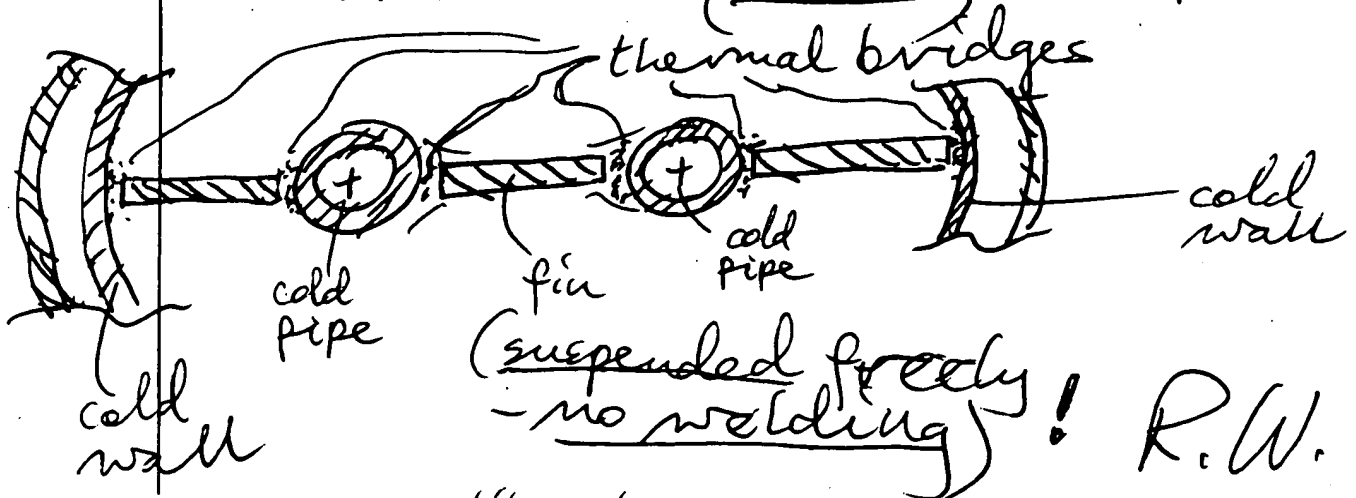 thermal bridges
cold
wall
cold
pipe
fin
cold
pipe
cold
wall
(suspended freely
- no welding) !
R.W.